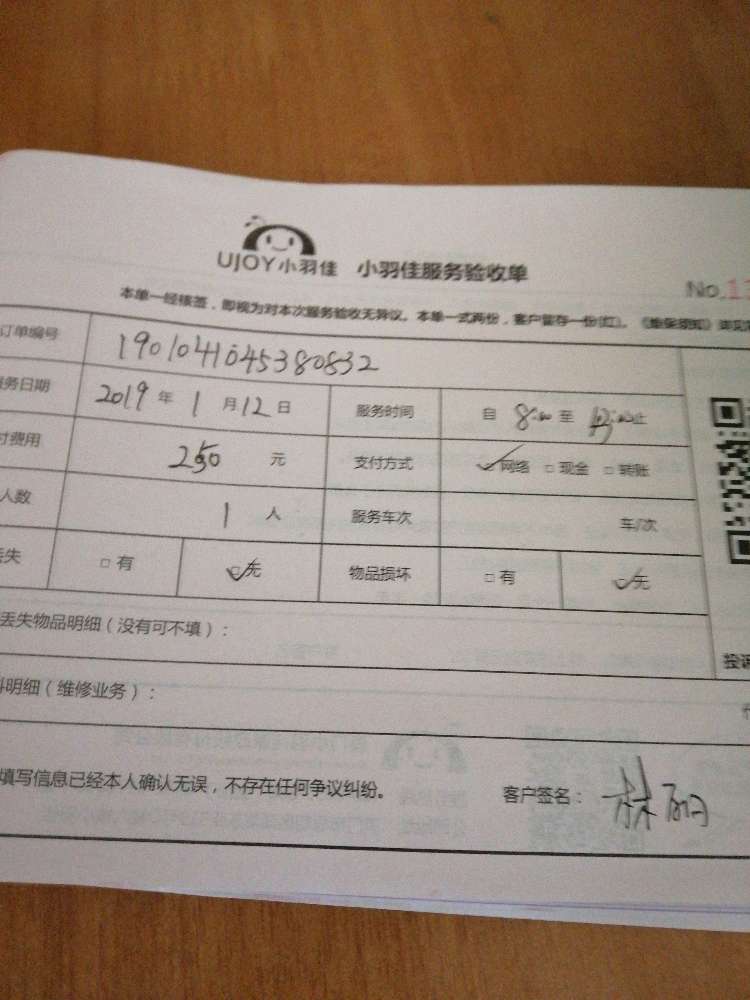 UJOY小羽佳 小羽佳服务验收单
No.1
本单一经核签，即视为对本次服务验收无异议。本单一式两份，客户留存一份(红)。
订单编号 190104104538083２
服务日期 2019年1月12日 服务时间 自 8:00 至 止
付费用 250 元 支付方式 网络 □现金 □转账
人数 1 人 服务车次 车/次
丢失 □有 无 物品损坏 □有 无
丢失物品明细（没有可不填）：
料明细（维修业务）：
填写信息已经本人确认无误，不存在任何争议纠纷。 客户签名：林
投诉